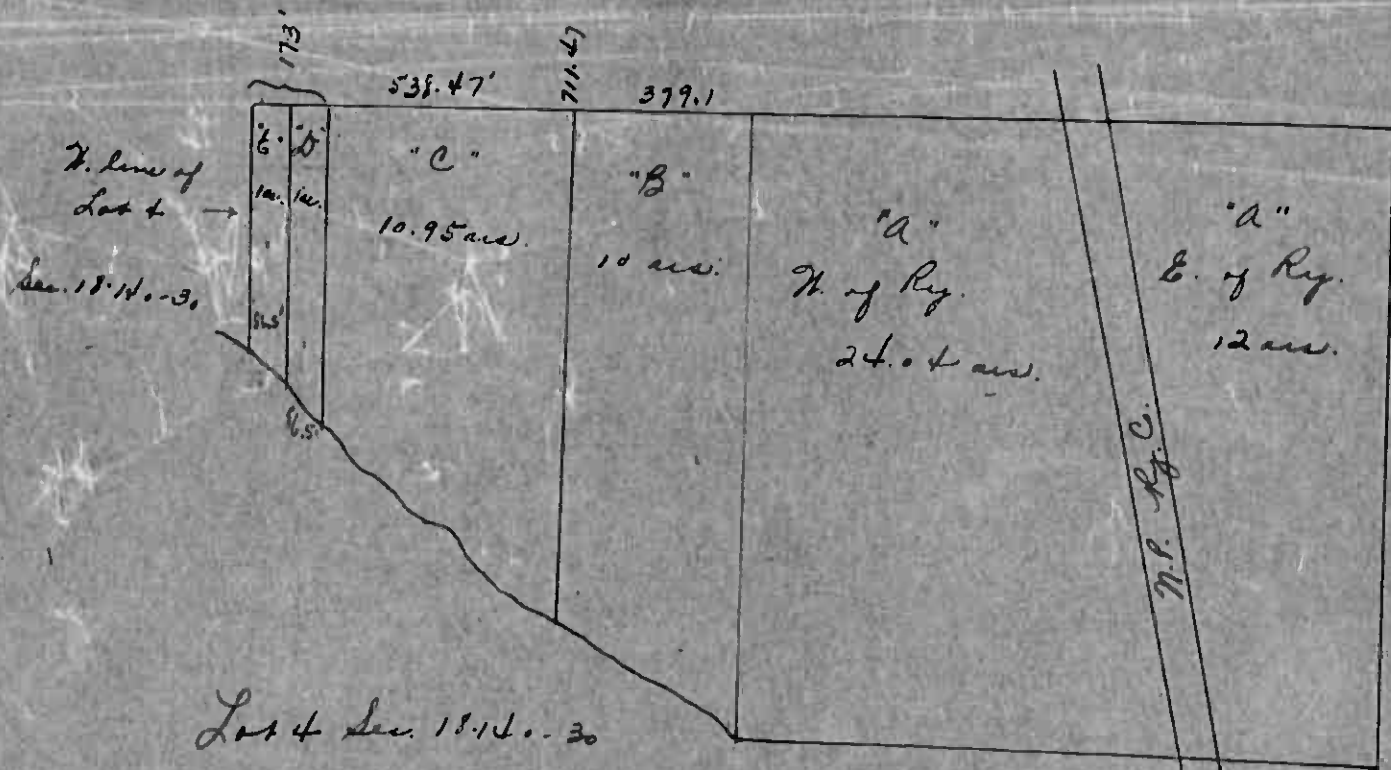 173'
538.47'
711.47
379.1
W. line of
Lot 4 →
Sec. 18-140-30
"E"
1 ac.
86.5'
"D"
1 ac.
86.5'
"C"
10.95 acs.
"B"
10 acs.
"A"
W. of Ry.
24.04 acs.
N.P. Ry. C.
"A"
E. of Ry.
12 acs.
Lot 4 Sec. 18-140-30